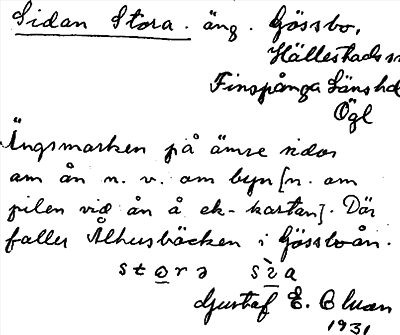 Sidan Stora. äng. Gössbo,
Hällestads sn
Finspånga Länshd
Ögl
Ängsmarken på ömse sidor
om ån n. v. om byn [n. om
pilen vid ån å ek-kartan]. Där
faller Ålhusbäcken i Gössboån.
Gustaf E. Bluan
1931